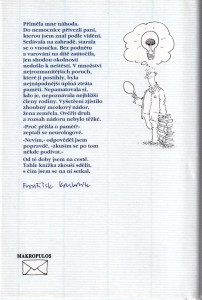 Přiměla mne náhoda.
Do nemocnice přivezli paní,
kterou jsem znal podle vidění.
Sedávala na zahradě, starala
se o vnoučka. Bez podnětu
a varování na dítě zaútočila,
jen shodou okolností
nedošlo k neštěstí. V množství
nejrozmanitějších poruch,
které ji postihly, byla
nejnápadnější úplná ztráta
paměti. Nepamatovala si,
kdo je, nepoznávala nejbližší
členy rodiny. Vyšetření zjistilo
zhoubný mozkový nádor,
žena zemřela. Ověřit druh
a rozsah nádoru nebylo těžké.
«Proč přišla o paměť?»
zeptali se neurologové.
«Nevím,» odpověděl jsem
popravdě, «zkusím se po tom
někde podívat.»
Od té doby jsem na cestě.
Tahle knížka zkouší sdělit,
s čím jsem se na ní setkal.
František Koukolík
MAKROPULOS